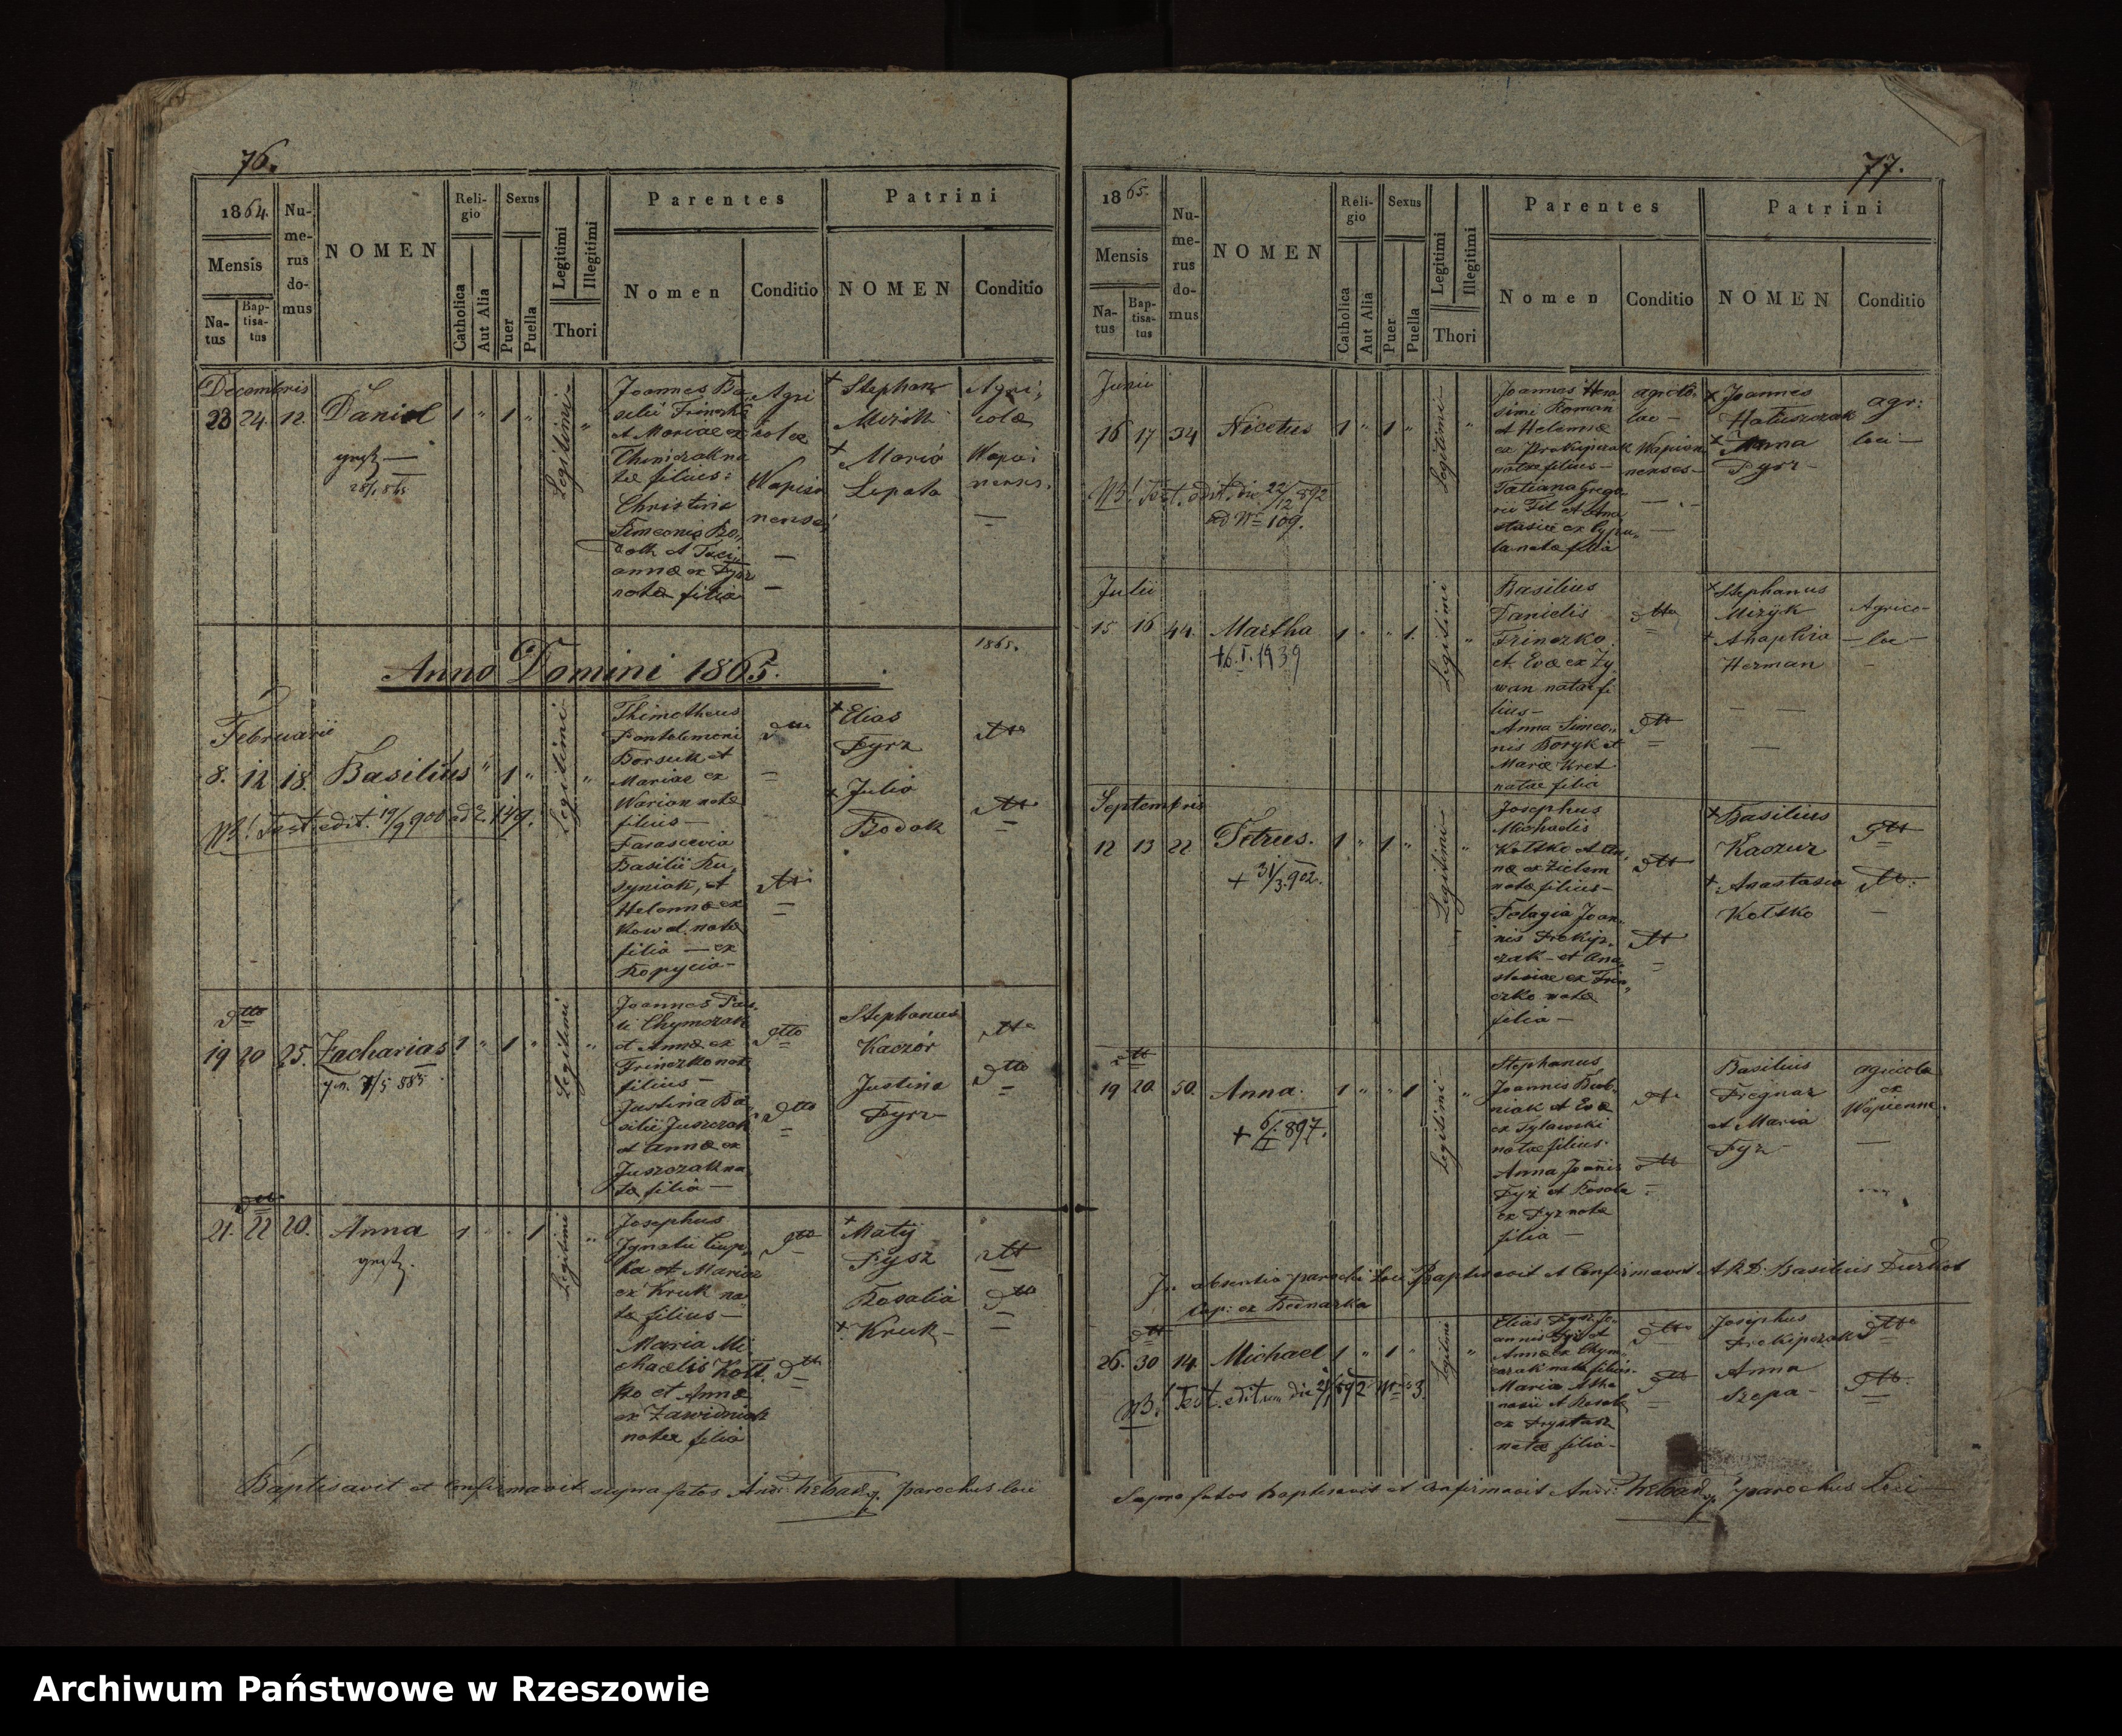 76.
1864.
Nu-
me-
rus
do-
mus
NOMEN
Reli-
gio
Sexus
Parentes
Patrini
Mensis
Na-
tus
Bap-
tisa-
tus
Catholica
Aut Alia
Puer
Puella
Legitimi
Illegitimi
Thori
Nomen
Conditio
NOMEN
Conditio
Decembris
23 24. 12. Daniel 1 " 1 "
Legitimi "
Joannes Ba
silii Frinczko
et Mariae ex
Chimczak na
tae filius:
Christina
Simeonis Bo,
annae ex Fyrz
natae filia
Agri
colae
Wapien
nenses
+ Stephan
+ Maria
Lepata
Agri,
colae
1865.
Anno Domini 1865.
Februarii
8. 12 18. Basilius " 1 "
NB! Test. edit. 19/9 900 ad N. 149.
Legitimi "
Thimotheus
Pantelimoni
Borsuk et
Mariae ex
Warian natae
filius —
Parascevia
Basilii Ru,
syniak, et
Helennae ex
Kowal natae
filia — ex
Ropycia —
+ Elias
Fyrz
+ Julia
Bodak
dtto
19 20 25. Zacharias 1 " 1 "
7/5 885
Legitimi "
Joannes Pau,
li Chymczak
et Annae ex
Frinczko natae
filius —
Justina Ba
silii Juszczak
et Annae ex
Juszczak na
tae filia —
dtto
dtto
Stephanus
Kaczór
Justina
Fyrz —
dtto
dtto
21. 22 20. Anna 1 " " 1
Legitimi "
Josephus
Ignatii Ciup,
ka et Mariae
ex Kruk na
tae filius —
Maria Mi
chaelis Kott
ko et Annae
ex Zawidniak
natae filia
dtto
dtto
+ Matij
Fysz
Rosalia
+ Kruk —
dtto
dtto
Baptisavit et Confirmavit supra fatos Andr: parochus loci
77.
1865.
Mensis
Na-
tus
Bap-
tisa-
tus
Nu-
me-
rus
do-
mus
NOMEN
Reli-
gio
Sexus
Catholica
Aut Alia
Puer
Puella
Legitimi
Illegitimi
Thori
Parentes
Patrini
Nomen
Conditio
NOMEN
Conditio
Junii
16 17 34 Nicetus 1 " 1 "
NB! Test. edit. die 22/12 892
ad No 109.
Legitimi "
Joannes Hera
simi Roman
et Helennae
ex Prokipczak
natae filius —
Tatiana Grego
rii
stasiae ex
ta natae filia
agrico.
lae —
Wapien
nenses —
x Joannes
Hatuszczak
+ Anna
Fyrz —
agr:
loci —
Julii
15 16 44. Martha 1 " " 1.
+6.I.1939
Legitimi "
Basilius
Danielis
Frinczko
et Evae ex Zy
wan natae fi
lius —
Anna Simeo,
nis Boryk et
Mariae Kret
natae filia
dtto
dtto
+ Stephanus
Mizyk
+ Ahaphia
Herman
Agrico-
lae —
Septembris
12 13 22 Petrus. 1 " 1 "
+ 31/3.902.
Legitimi "
Josephus
Michaelis
Kottko et An,
nae ex Zielem
natae filius —
Pelagia Joan,
nis Prokip,
czak — et Ana,
stasiae ex Frin,
czko natae
filia —
dtto
dtto
+ Basilius
Kaczur
+ Anastasia
Kotsko
dtto
dtto:
dtto
19 20. 50. Anna. 1 " " 1
+ 6/I 897.
Legitimi "
Stephanus
Joannis Bub,
niak et Evae
ex Sylawski
natae filius.
Anna Joannis
Fyrz et Rosalae
ex Fyrz natae
filia —
Basilius
Fregnar
et Maria
Fyz
agricola
ex
Wapienne.
In absentia parochi Loci Baptisavit et Confirmavit A.R.D. Basilius Durkot
cap: ex Bednarka
dtto
26. 30 14. Michael 1 " 1 "
NB! Test. editum die 892
Legitimi "
Elias Fysz Jo-
annis Fysz et
Annae ex Chym-
czak natae filius.
Maria Atha
nasii et Rosalae
ex Krysztak
natae filia —
dtto
dtto
Josephus
Prokipczak
Anna
Szepa —
dtto
dtto
Supra fatos baptisavit et Confirmavit Andr: parochus Loci —
Archiwum Państwowe w Rzeszowie